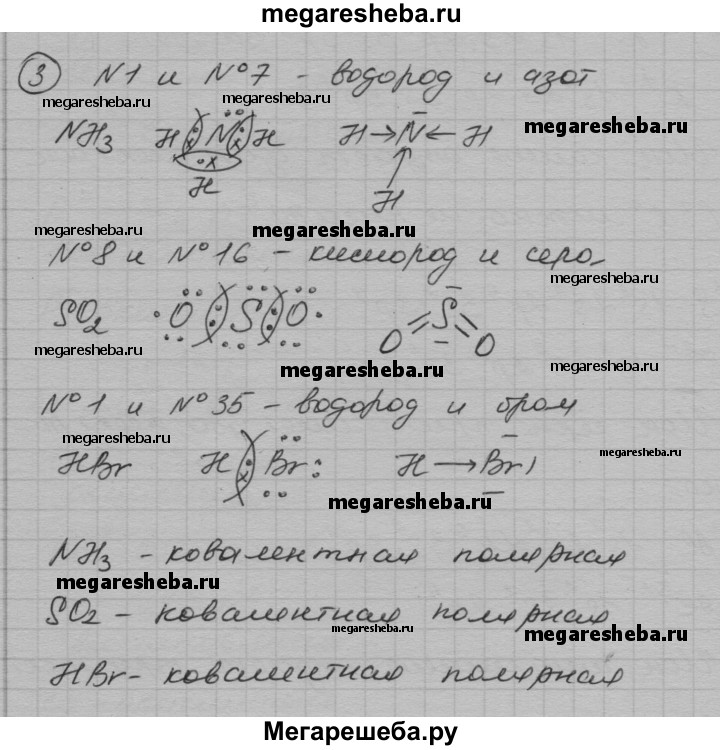 megaresheba.ru
③ N1 и №7 - водород и азот
megaresheba.ru megaresheba.ru megaresheba.ru
NH₃ H N H H→N←H megaresheba.ru
H H
megaresheba.ru megaresheba.ru
№8 и №16 - кислород и сера
SO₂ O S O S
O O
megaresheba.ru megaresheba.ru megaresheba.ru
№1 и №35 - водород и бром
megaresheba.ru megaresheba.ru megaresheba.ru
HBr H Br H→Br
megaresheba.ru
NH₃ - ковалентная полярная
megaresheba.ru
SO₂ - ковалентная полярная
megaresheba.ru megaresheba.ru
HBr - ковалентная полярная
Мегарешеба.ру